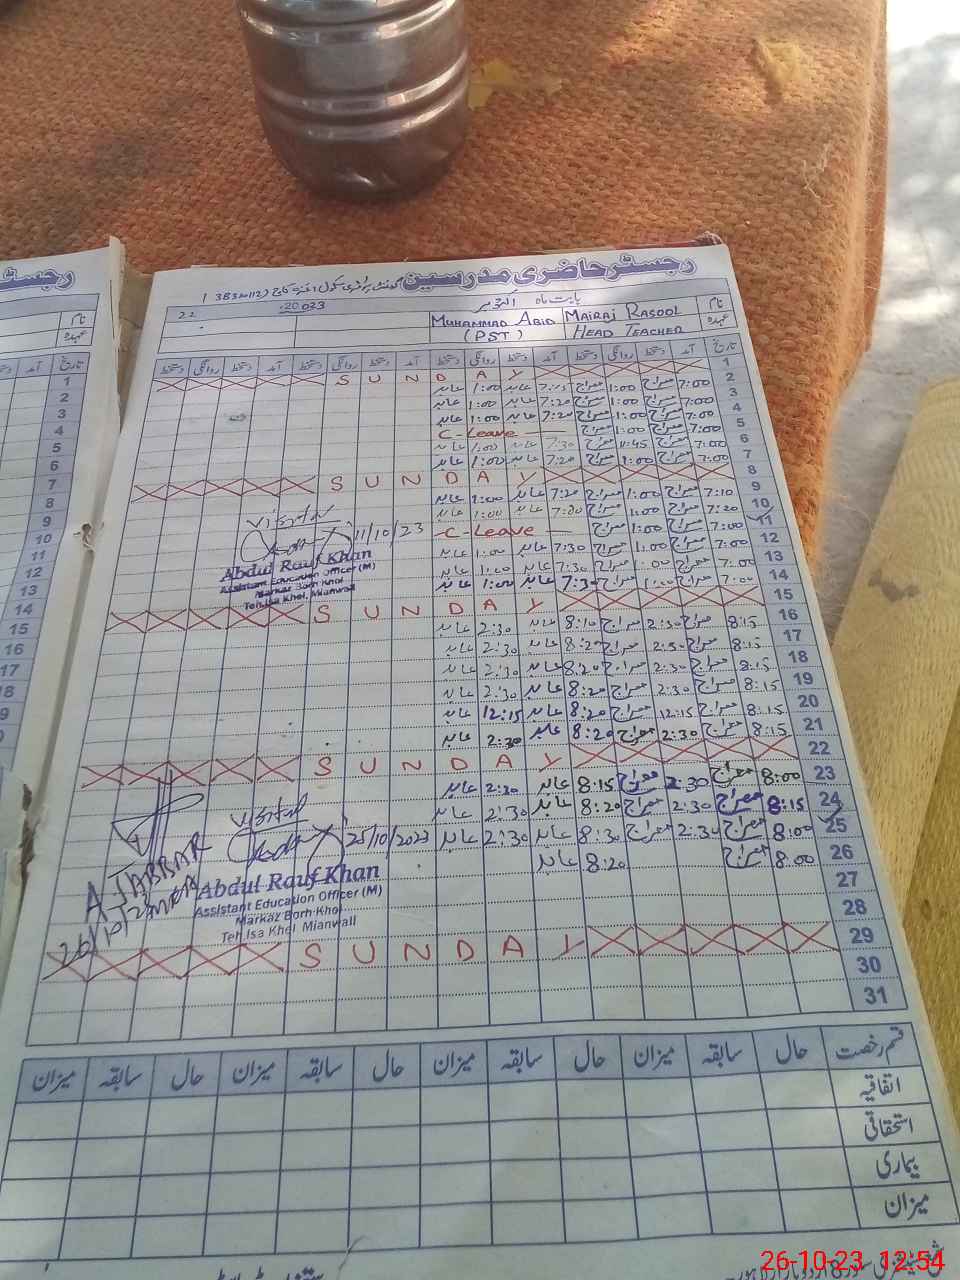 رجسٹر حاضری مدرسین
بابت ماہ اکتوبر 2023
نام MAIRAJ RASOOL MUHAMMAD ABID
عہدہ HEAD TEACHER (PST)
تاریخ آمد دستخط روانگی دستخط آمد دستخط روانگی دستخط آمد دستخط روانگی دستخط
1 S U N D A Y
2 7:00 معراج 1:00 معراج 7:15 عابد 1:00 عابد
3 7:00 معراج 1:00 معراج 7:20 عابد 1:00 عابد
4 7:00 معراج 1:00 معراج 7:20 عابد 1:00 عابد
5 7:00 معراج 1:00 C-Leave
6 7:00 معراج 11:45 معراج 7:30 عابد 1:00 عابد
7 7:00 معراج 1:00 معراج 7:20 عابد 1:00 عابد
8 S U N D A Y
9 7:10 معراج 1:00 معراج 7:20 عابد 1:00 عابد
10 7:20 معراج 1:00 معراج عابد 1:00 عابد
11 7:00 معراج 1:00 معراج C-Leave
12 7:00 معراج 1:00 معراج 7:30 عابد 1:00 عابد
13 7:00 معراج 1:00 معراج 7:30 عابد 1:00 عابد
14 7:00 معراج 1:00 معراج 7:30 عابد 1:00 عابد
15 S U N D A Y
16 8:15 معراج 2:30 معراج 8:10 عابد 2:30 عابد
17 8:15 معراج 2:30 معراج 8:20 عابد 2:30 عابد
18 8:15 معراج 2:30 معراج 8:20 عابد 2:30 عابد
19 8:15 معراج 2:30 معراج 8:20 عابد 2:30 عابد
20 8:15 معراج 12:15 معراج 8:20 عابد 12:15 عابد
21 8:15 معراج 2:30 معراج 8:20 عابد 2:30 عابد
22 S U N D A Y
23 8:00 معراج 2:30 معراج 8:15 عابد 2:30 عابد
24 8:15 معراج 2:30 معراج 8:20 عابد 2:30 عابد
25 8:00 معراج 2:30 معراج 8:30 عابد 2:30 عابد
26 8:00 معراج 8:20 عابد
27
28
29 S U N D A Y
30
31
Visited
11/10/23
Abdul Rauf Khan
Assistant Education Officer (M)
Markaz Borh Khel
Teh.Isa Khel, Mianwali
Visited
25/10/2023
Abdul Rauf Khan
Assistant Education Officer (M)
Markaz Borh Khel
Teh.Isa Khel Mianwali
A JABBAR
MEA
قسم رخصت حال سابقہ میزان حال سابقہ میزان حال سابقہ میزان حال سابقہ میزان
اتفاقیہ
استحقاقی
بیماری
میزان
رجسٹر
نام
عہدہ
تاریخ آمد دستخط
1
2
3
4
5
6
7
8
9
10
11
12
13
14
15
16
17
18
19
20
21
26-10-23 12:54